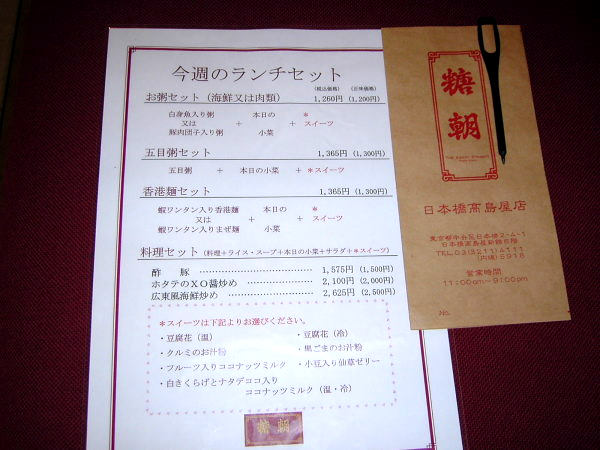 今週のランチセット
(税込価格) (正味価格)
お粥セット（海鮮又は肉類） 1,260円 (1,200円)
白身魚入り粥 本日の *
又は + + スイーツ
豚肉団子入り粥 小菜
五目粥セット 1,365円 (1,300円)
五目粥 + 本日の小菜 + *スイーツ
香港麺セット 1,365円 (1,300円)
蝦ワンタン入り香港麺 本日の *
又は + + スイーツ
蝦ワンタン入りまぜ麺 小菜
料理セット (料理+ライス・スープ+本日の小菜+サラダ+*スイーツ)
酢 豚 1,575円 (1,500円)
ホタテのXO醤炒め 2,100円 (2,000円)
広東風海鮮炒め 2,625円 (2,500円)
*スイーツは下記よりお選びください。
・豆腐花（温） ・豆腐花（冷）
・クルミのお汁粉 ・黒ごまのお汁粉
・フルーツ入りココナッツミルク ・小豆入り仙草ゼリー
・白きくらげとナタデココ入り
ココナッツミルク（温・冷）
糖朝
糖朝
日本橋高島屋店
東京都中央区日本橋2-4-1
日本橋高島屋新館6階
TEL.03(3211)4111
(内線)5918
営業時間
11:00am〜9:00pm
No.